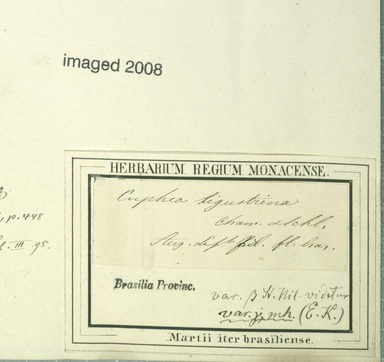 imaged 2008
p. 448
III 95.
HERBARIUM REGIUM MONACENSE.
Cuphea ligustrina
Cham. et Schl.
fl. bras.
Brasilia Provinc.
var. β St. Hil. videtur
var. γ, mh. (E. K.)
Martii iter brasiliense.